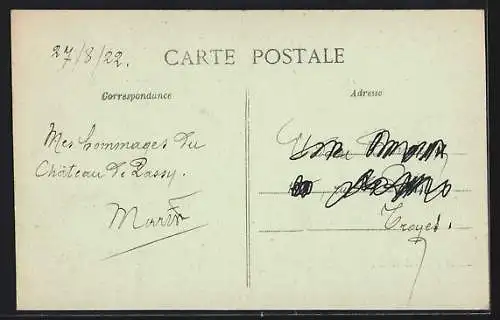 27/8/22.
CARTE POSTALE
Correspondance
Adresse
Mes hommages du
Château de Passy.
Martin
Troyes.